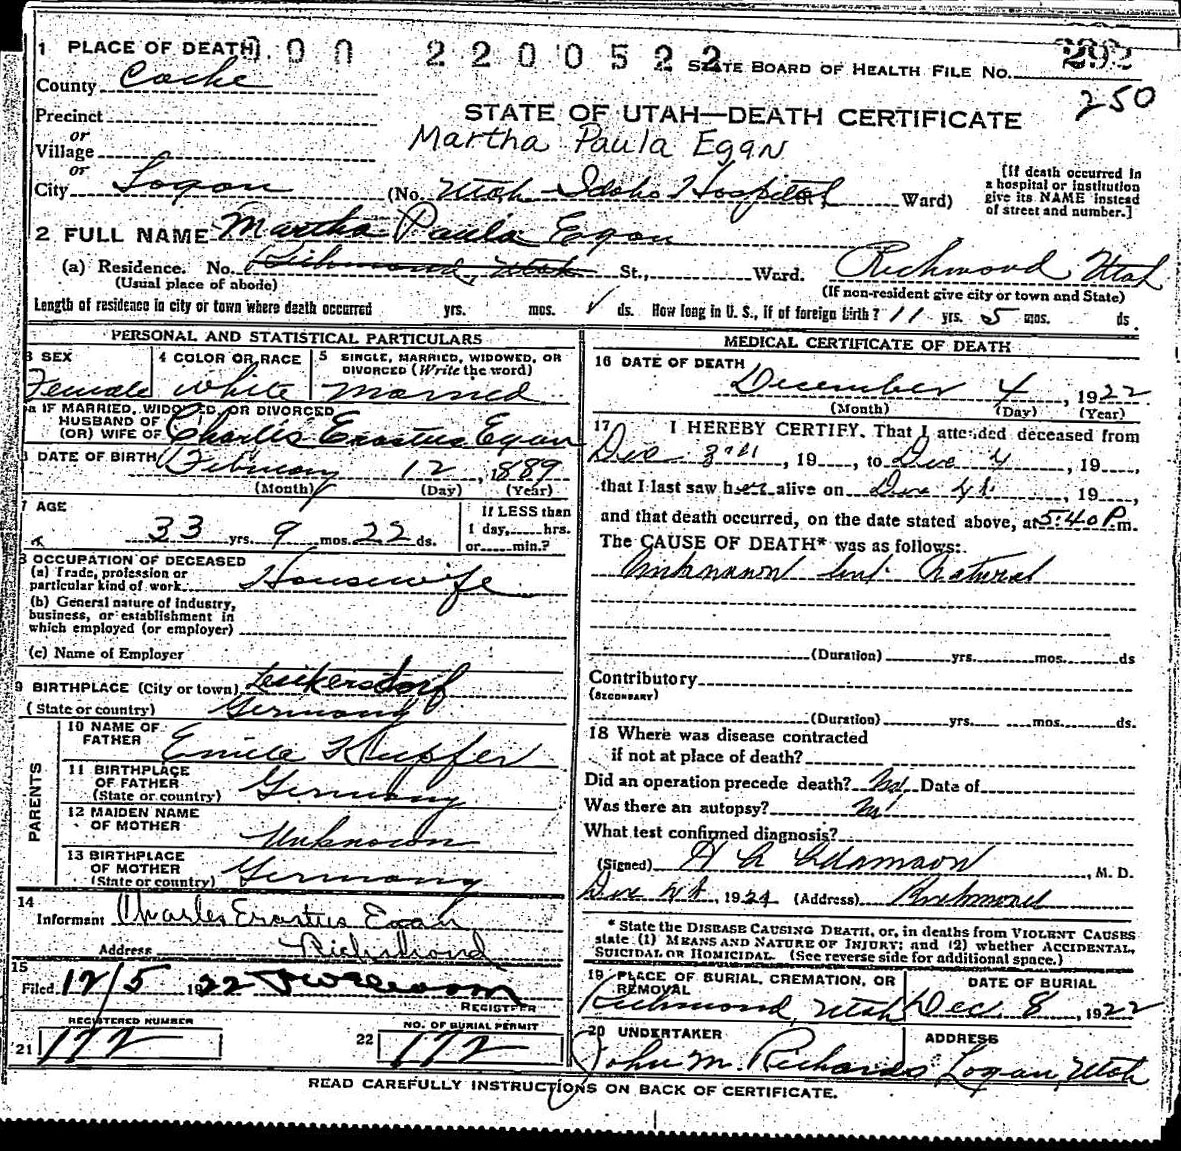 1 PLACE OF DEATH
000 2200522
STATE BOARD OF HEALTH FILE NO. 292
250
County Cache
STATE OF UTAH—DEATH CERTIFICATE
Precinct
Martha Paula Egan
or
Village
or
City Logan (No. Utah Idaho Hospital Ward)
[If death occurred in a hospital or institution give its NAME instead of street and number.]
2 FULL NAME Martha Paula Egan
(a) Residence. No. Richmond, Utah St., Ward. Richmond Utah
(Usual place of abode) (If non-resident give city or town and State)
Length of residence in city or town where death occurred yrs. mos. ✓ ds. How long in U. S., if of foreign birth? 11 yrs. 5 mos. ds.
PERSONAL AND STATISTICAL PARTICULARS
3 SEX Female
4 COLOR OR RACE White
5 SINGLE, MARRIED, WIDOWED, OR DIVORCED (Write the word) Married
5a IF MARRIED, WIDOWED, OR DIVORCED
HUSBAND OF
(OR) WIFE OF Charles Erastus Egan
6 DATE OF BIRTH February 12, 1889
(Month) (Day) (Year)
7 AGE
33 yrs. 9 mos. 22 ds.
If LESS than
1 day, hrs.
or min.?
8 OCCUPATION OF DECEASED
(a) Trade, profession or
particular kind of work Housewife
(b) General nature of industry,
business, or establishment in
which employed (or employer)
(c) Name of Employer
9 BIRTHPLACE (City or town) Leukersdorf
(State or country) Germany
PARENTS
10 NAME OF
FATHER Emile Kupfer
11 BIRTHPLACE
OF FATHER
(State or country) Germany
12 MAIDEN NAME
OF MOTHER Unknown
13 BIRTHPLACE
OF MOTHER
(State or country) Germany
14
Informant Charles Erastus Egan
Address Richmond
15
Filed 12/5 1922
REGISTER
REGISTERED NUMBER
21 172
NO. OF BURIAL PERMIT
22 172
MEDICAL CERTIFICATE OF DEATH
16 DATE OF DEATH
December 4, 1922
(Month) (Day) (Year)
17 I HEREBY CERTIFY, That I attended deceased from
Dec 3rd, 19, to Dec 4, 19,
that I last saw her alive on Dec 4th, 19,
and that death occurred, on the date stated above, at 5:40 P.m.
The CAUSE OF DEATH* was as follows:
Unknown but Natural
(Duration) yrs. mos. ds
Contributory
(SECONDARY)
(Duration) yrs. mos. ds.
18 Where was disease contracted
if not at place of death?
Did an operation precede death? No Date of
Was there an autopsy? No
What test confirmed diagnosis?
(Signed) Adamson, M. D.
Dec 4th, 1922 (Address) Richmond
* State the DISEASE CAUSING DEATH, or, in deaths from VIOLENT CAUSES
state (1) MEANS AND NATURE OF INJURY; and (2) whether ACCIDENTAL,
SUICIDAL OR HOMICIDAL. (See reverse side for additional space.)
19 PLACE OF BURIAL, CREMATION, OR
REMOVAL
Richmond, Utah
DATE OF BURIAL
Dec. 8, 1922
20 UNDERTAKER
John M. Richards
ADDRESS
Logan, Utah
READ CAREFULLY INSTRUCTIONS ON BACK OF CERTIFICATE.